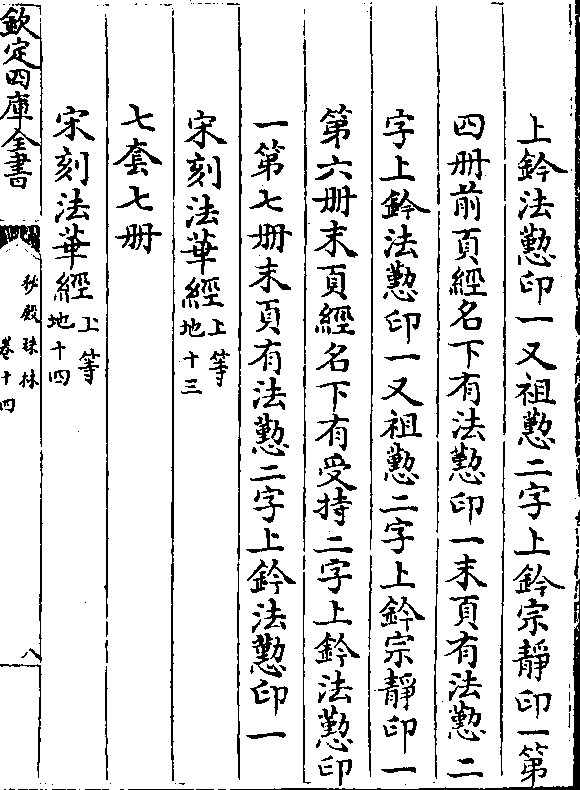 上鈐法懃印一又祖懃二字上鈐宗靜印一第
四册前頁經名下有法懃印一末頁有法懃二
字上鈐法懃印一又祖懃二字上鈐宗靜印一
第六册末頁經名下有受持二字上鈐法懃印
一第七册末頁有法懃二字上鈐法懃印一
宋刻法華經上等地十三
七套七册
宋刻法華經上等地十四
欽定四庫全書
秘殿珠林
卷十四
八